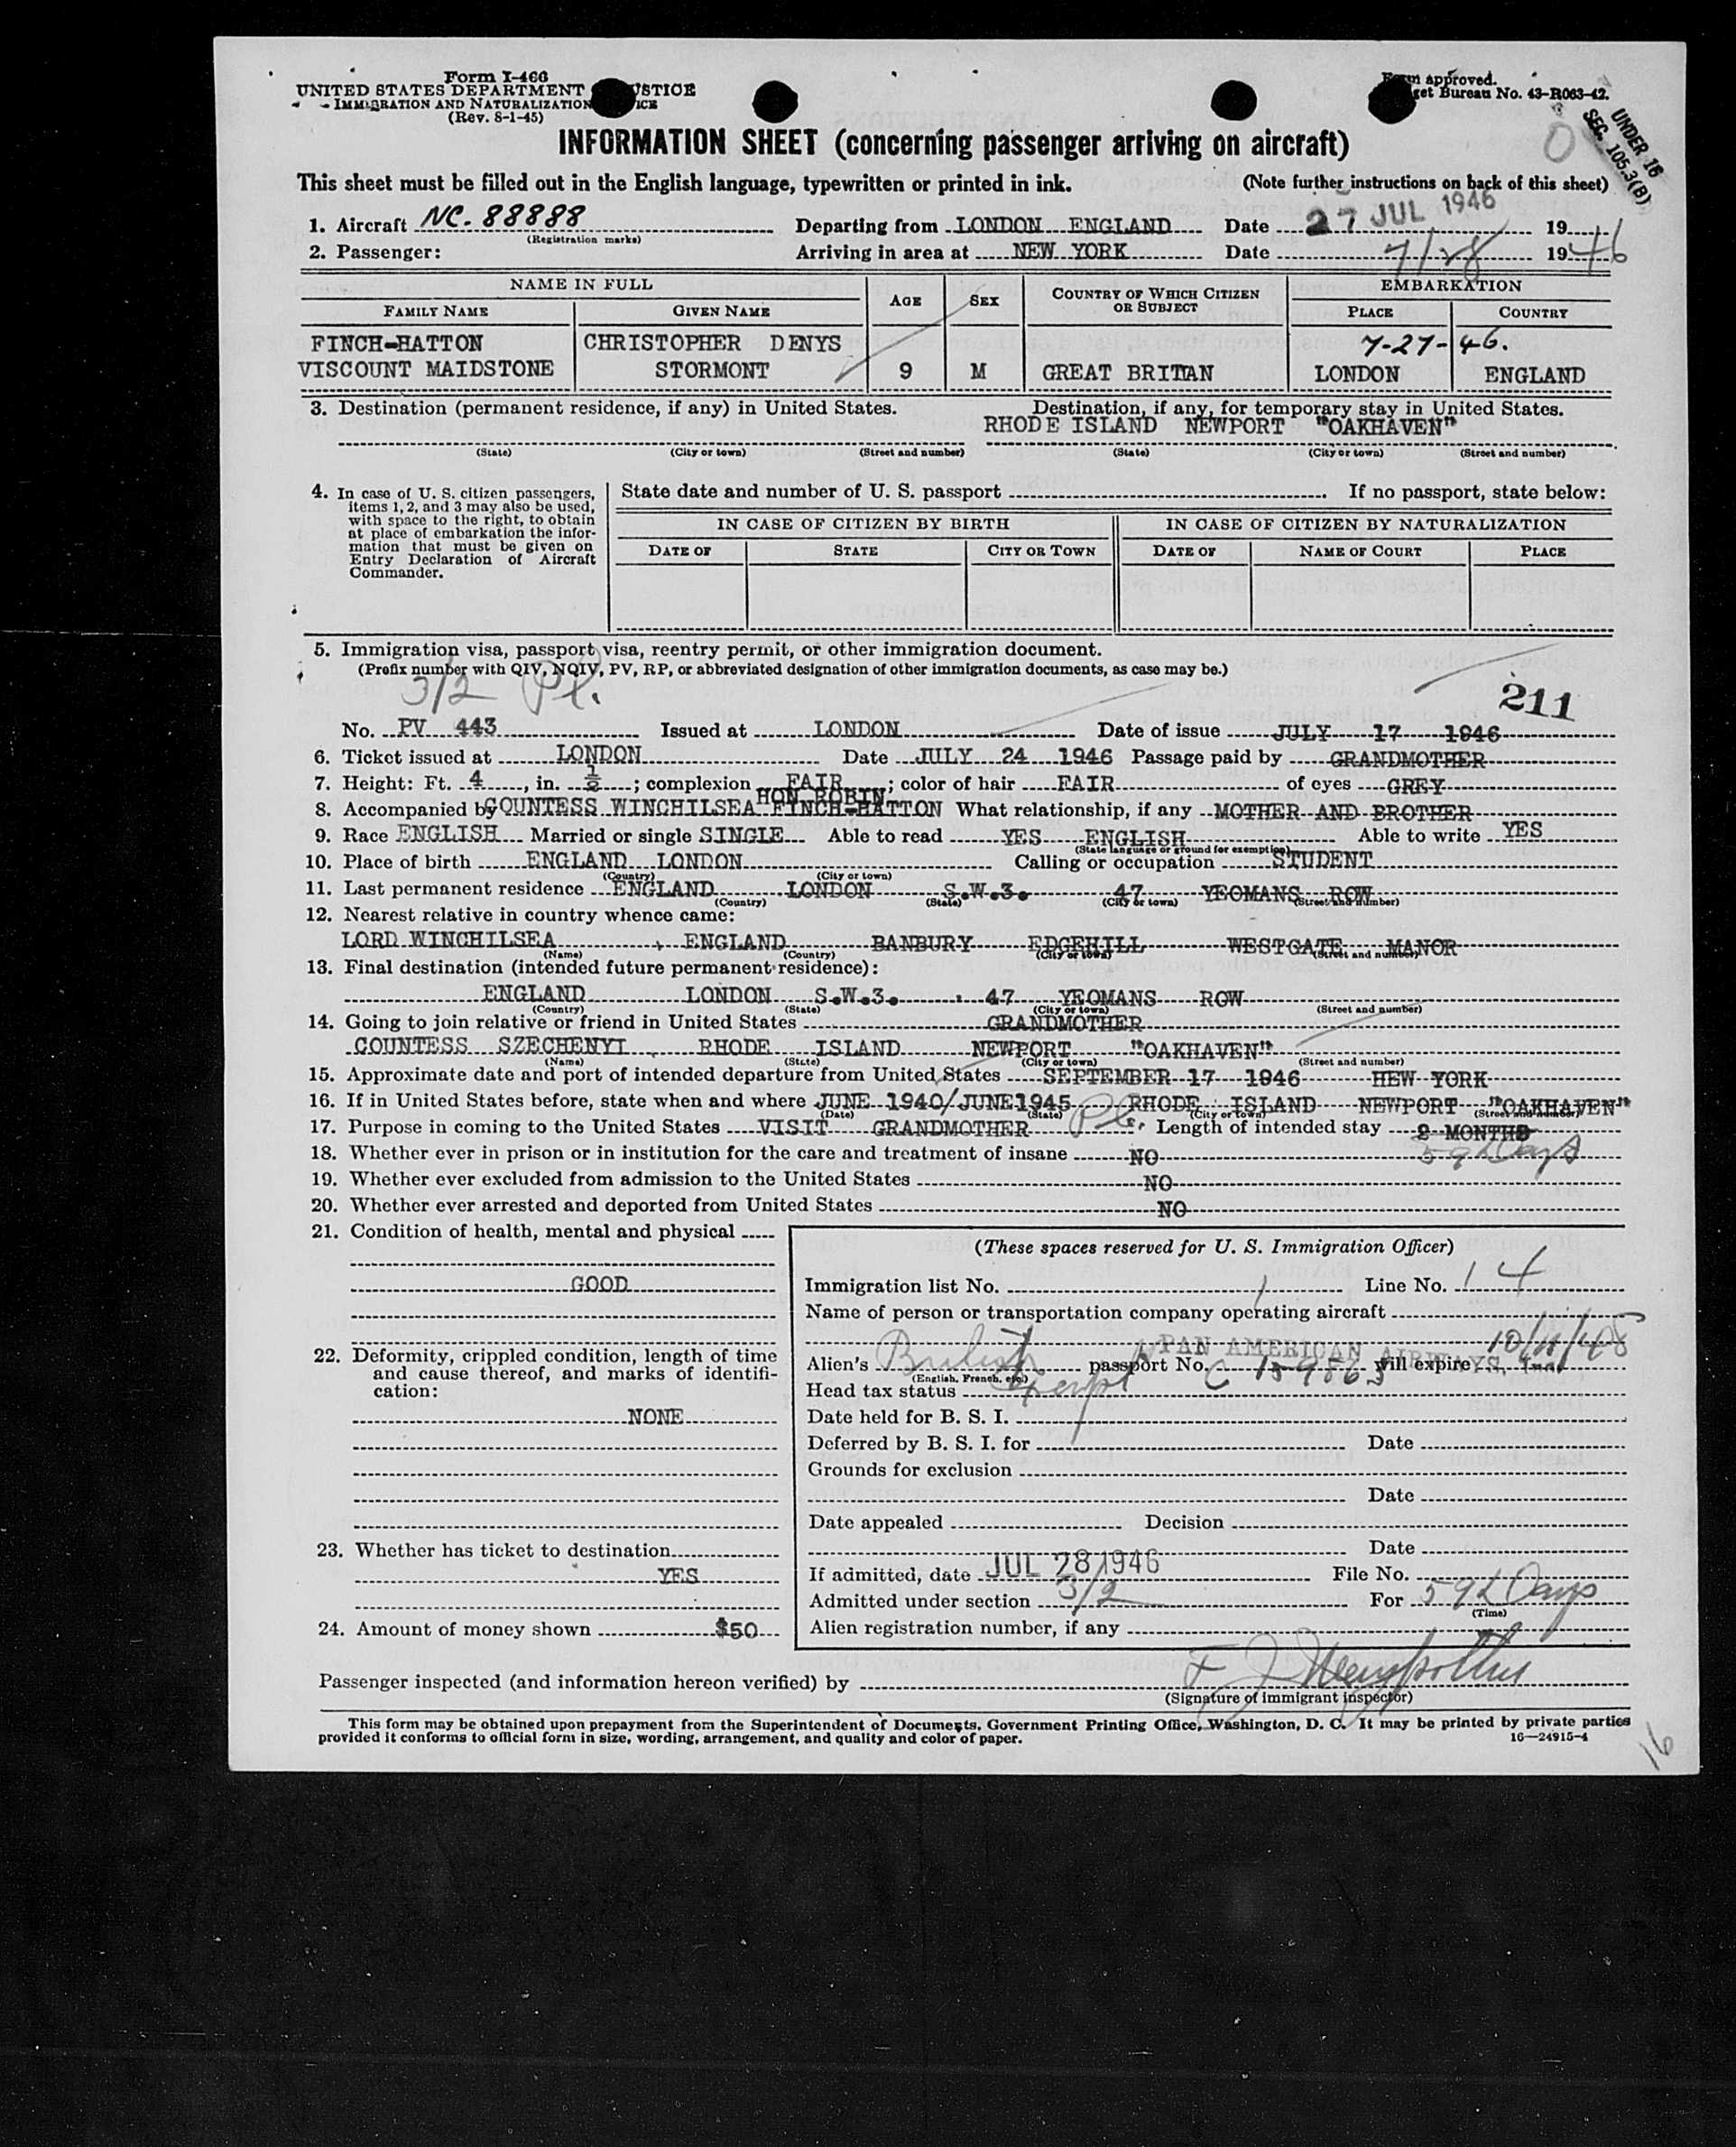 Form I-466
UNITED STATES DEPARTMENT JUSTICE
IMMIGRATION AND NATURALIZATION
(Rev. 8-1-45)
Form approved.
Bureau No. 43-R063-42.
UNDER 16
SEC. 105.3(B)
INFORMATION SHEET (concerning passenger arriving on aircraft)
This sheet must be filled out in the English language, typewritten or printed in ink. (Note further instructions on back of this sheet)
1. Aircraft NC. 88888 Departing from LONDON ENGLAND Date 27 JUL 1946 19
(Registration marks)
2. Passenger: Arriving in area at NEW YORK Date 7/28 1946
NAME IN FULL AGE SEX COUNTRY OF WHICH CITIZEN OR SUBJECT EMBARKATION
FAMILY NAME GIVEN NAME PLACE COUNTRY
FINCH-HATTON CHRISTOPHER DENYS 7-27-46.
VISCOUNT MAIDSTONE STORMONT 9 M GREAT BRITIAN LONDON ENGLAND
3. Destination (permanent residence, if any) in United States. Destination, if any, for temporary stay in United States.
RHODE ISLAND NEWPORT "OAKHAVEN"
(State) (City or town) (Street and number) (State) (City or town) (Street and number)
4. In case of U. S. citizen passengers,
items 1, 2, and 3 may also be used,
with space to the right, to obtain
at place of embarkation the infor-
mation that must be given on
Entry Declaration of Aircraft
Commander.
State date and number of U. S. passport . If no passport, state below:
IN CASE OF CITIZEN BY BIRTH IN CASE OF CITIZEN BY NATURALIZATION
DATE OF STATE CITY OR TOWN DATE OF NAME OF COURT PLACE
5. Immigration visa, passport visa, reentry permit, or other immigration document.
(Prefix number with QIV, NQIV, PV, RP, or abbreviated designation of other immigration documents, as case may be.)
3/2 Pl.
211
No. PV 443 Issued at LONDON Date of issue JULY 17 1946
6. Ticket issued at LONDON Date JULY 24 1946 Passage paid by GRANDMOTHER
7. Height: Ft. 4, in. 1/2; complexion FAIR; color of hair FAIR of eyes GREY
HON ROBIN
8. Accompanied by COUNTESS WINCHILSEA FINCH-HATTON What relationship, if any MOTHER AND BROTHER
9. Race ENGLISH Married or single SINGLE Able to read YES ENGLISH Able to write YES
(State language or ground for exemption)
10. Place of birth ENGLAND LONDON Calling or occupation STUDENT
(Country) (City or town)
11. Last permanent residence ENGLAND LONDON S.W.3. 47 YEOMANS ROW
(Country) (State) (City or town) (Street and number)
12. Nearest relative in country whence came:
LORD WINCHILSEA ENGLAND BANBURY EDGEHILL WESTGATE MANOR
(Name) (Country) (City or town) (Street and number)
13. Final destination (intended future permanent residence):
ENGLAND LONDON S.W.3. 47 YEOMANS ROW
(Country) (State) (City or town) (Street and number)
14. Going to join relative or friend in United States GRANDMOTHER
COUNTESS SZECHENYI RHODE ISLAND NEWPORT "OAKHAVEN"
(Name) (State) (City or town) (Street and number)
15. Approximate date and port of intended departure from United States SEPTEMBER 17 1946 HEW YORK
16. If in United States before, state when and where JUNE 1940/JUNE1945 RHODE ISLAND NEWPORT "OAKHAVEN"
(Date) (State) (City or town) (Street and number)
17. Purpose in coming to the United States VISIT GRANDMOTHER Pl. Length of intended stay 2 MONTHS
18. Whether ever in prison or in institution for the care and treatment of insane NO 59 Days
19. Whether ever excluded from admission to the United States NO
20. Whether ever arrested and deported from United States NO
21. Condition of health, mental and physical
GOOD
22. Deformity, crippled condition, length of time
and cause thereof, and marks of identifi-
cation:
NONE
23. Whether has ticket to destination
YES
24. Amount of money shown $50
(These spaces reserved for U. S. Immigration Officer)
Immigration list No. 1 Line No. 14
Name of person or transportation company operating aircraft
PAN AMERICAN AIRWAYS, Inc.
Alien's British passport No. will expire
(English, French, etc.)
Head tax status Exempt
Date held for B. S. I.
Deferred by B. S. I. for Date
Grounds for exclusion
Date
Date appealed Decision
Date
If admitted, date JUL 28 1946 File No.
Admitted under section 3/2 For 59 Days
(Time)
Alien registration number, if any
Passenger inspected (and information hereon verified) by
(Signature of immigrant inspector)
This form may be obtained upon prepayment from the Superintendent of Documents, Government Printing Office, Washington, D. C. It may be printed by private parties
provided it conforms to official form in size, wording, arrangement, and quality and color of paper. 16—24915-4
16